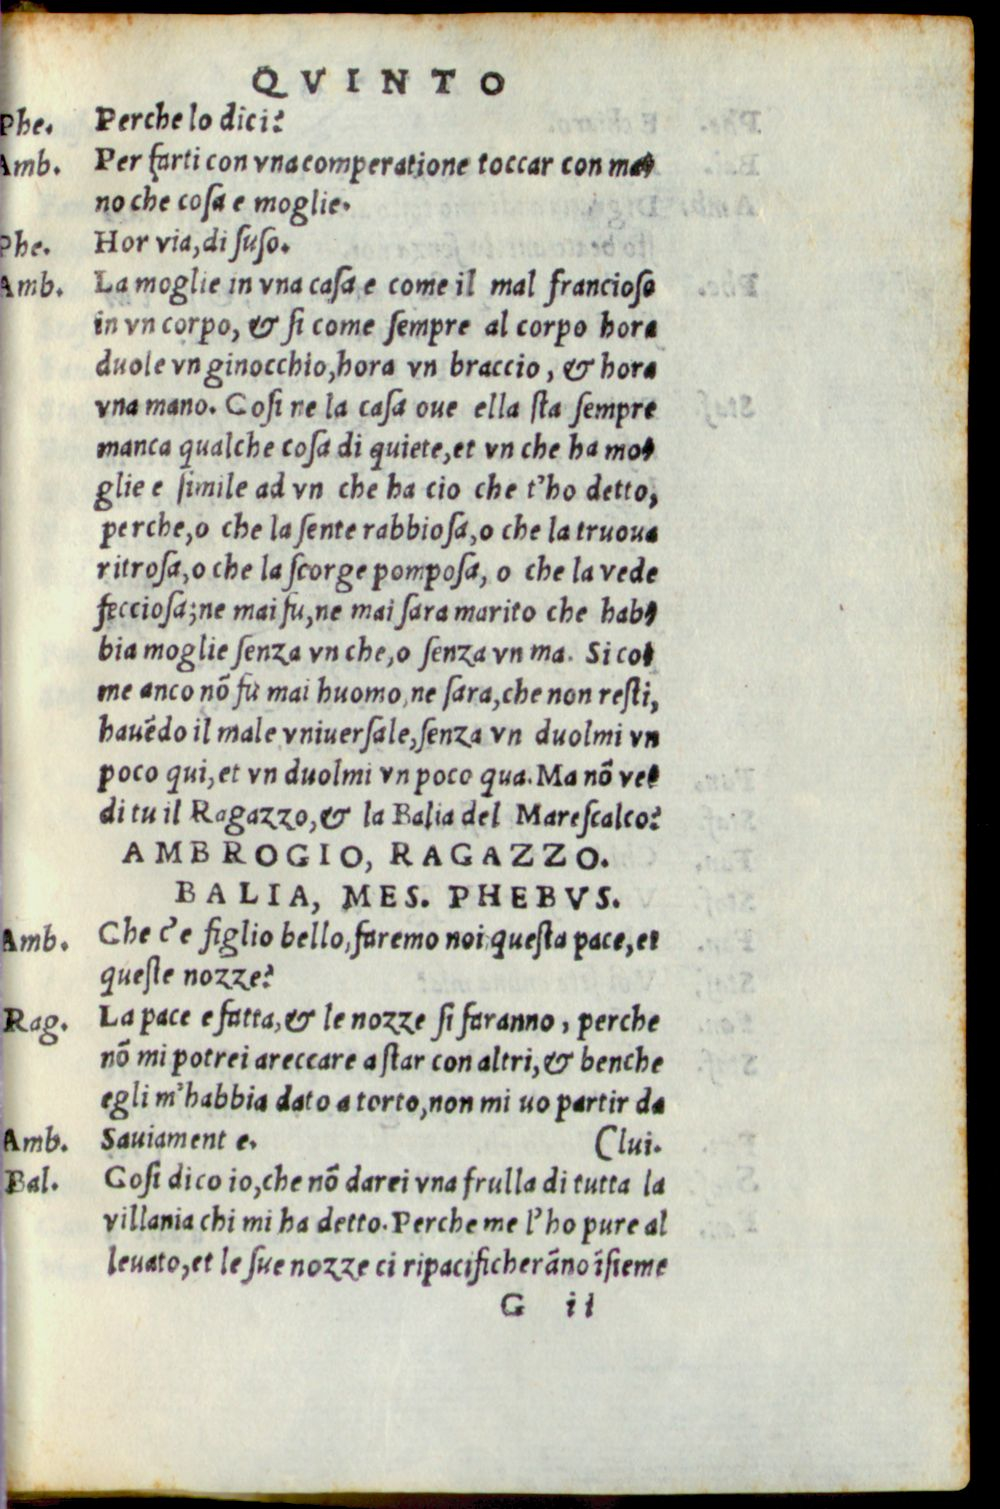 QVINTO
Phe. Perche lo dici?
Amb. Per farti con vna comperatione toccar con ma-
no che cosa e moglie.
Phe. Hor via, di suso.
Amb. La moglie in vna casa e come il mal francioso
in vn corpo, & si come sempre al corpo hora
duole vn ginocchio, hora vn braccio, & hora
vna mano. Cosi ne la casa oue ella sta sempre
manca qualche cosa di quiete, et vn che ha mo-
glie e simile ad vn che ha cio che t'ho detto,
perche, o che la sente rabbiosa, o che la truoua
ritrosa, o che la scorge pomposa, o che la vede
fecciosa; ne mai fu, ne mai sara marito che hab-
bia moglie senza vn che, o senza vn ma. Si co-
me anco nõ fu mai huomo, ne sara, che non resti,
hauẽdo il male vniuersale, senza vn duolmi vn
poco qui, et vn duolmi vn poco qua. Ma nõ ve-
di tu il Ragazzo, & la Balia del Marescalco?
AMBROGIO, RAGAZZO.
BALIA, MES. PHEBVS.
Amb. Che c'e figlio bello, faremo noi questa pace, et
queste nozze?
Rag. La pace e fatta, & le nozze si faranno, perche
nõ mi potrei areccare a star con altri, & benche
egli m'habbia dato a torto, non mi uo partir da
Amb. Sauiamente. (lui.
Bal. Cosi dico io, che nõ darei vna frulla di tutta la
villania chi mi ha detto. Perche me l'ho pure al
leuato, et le sue nozze ci ripacificherãno ĩsieme
G ii